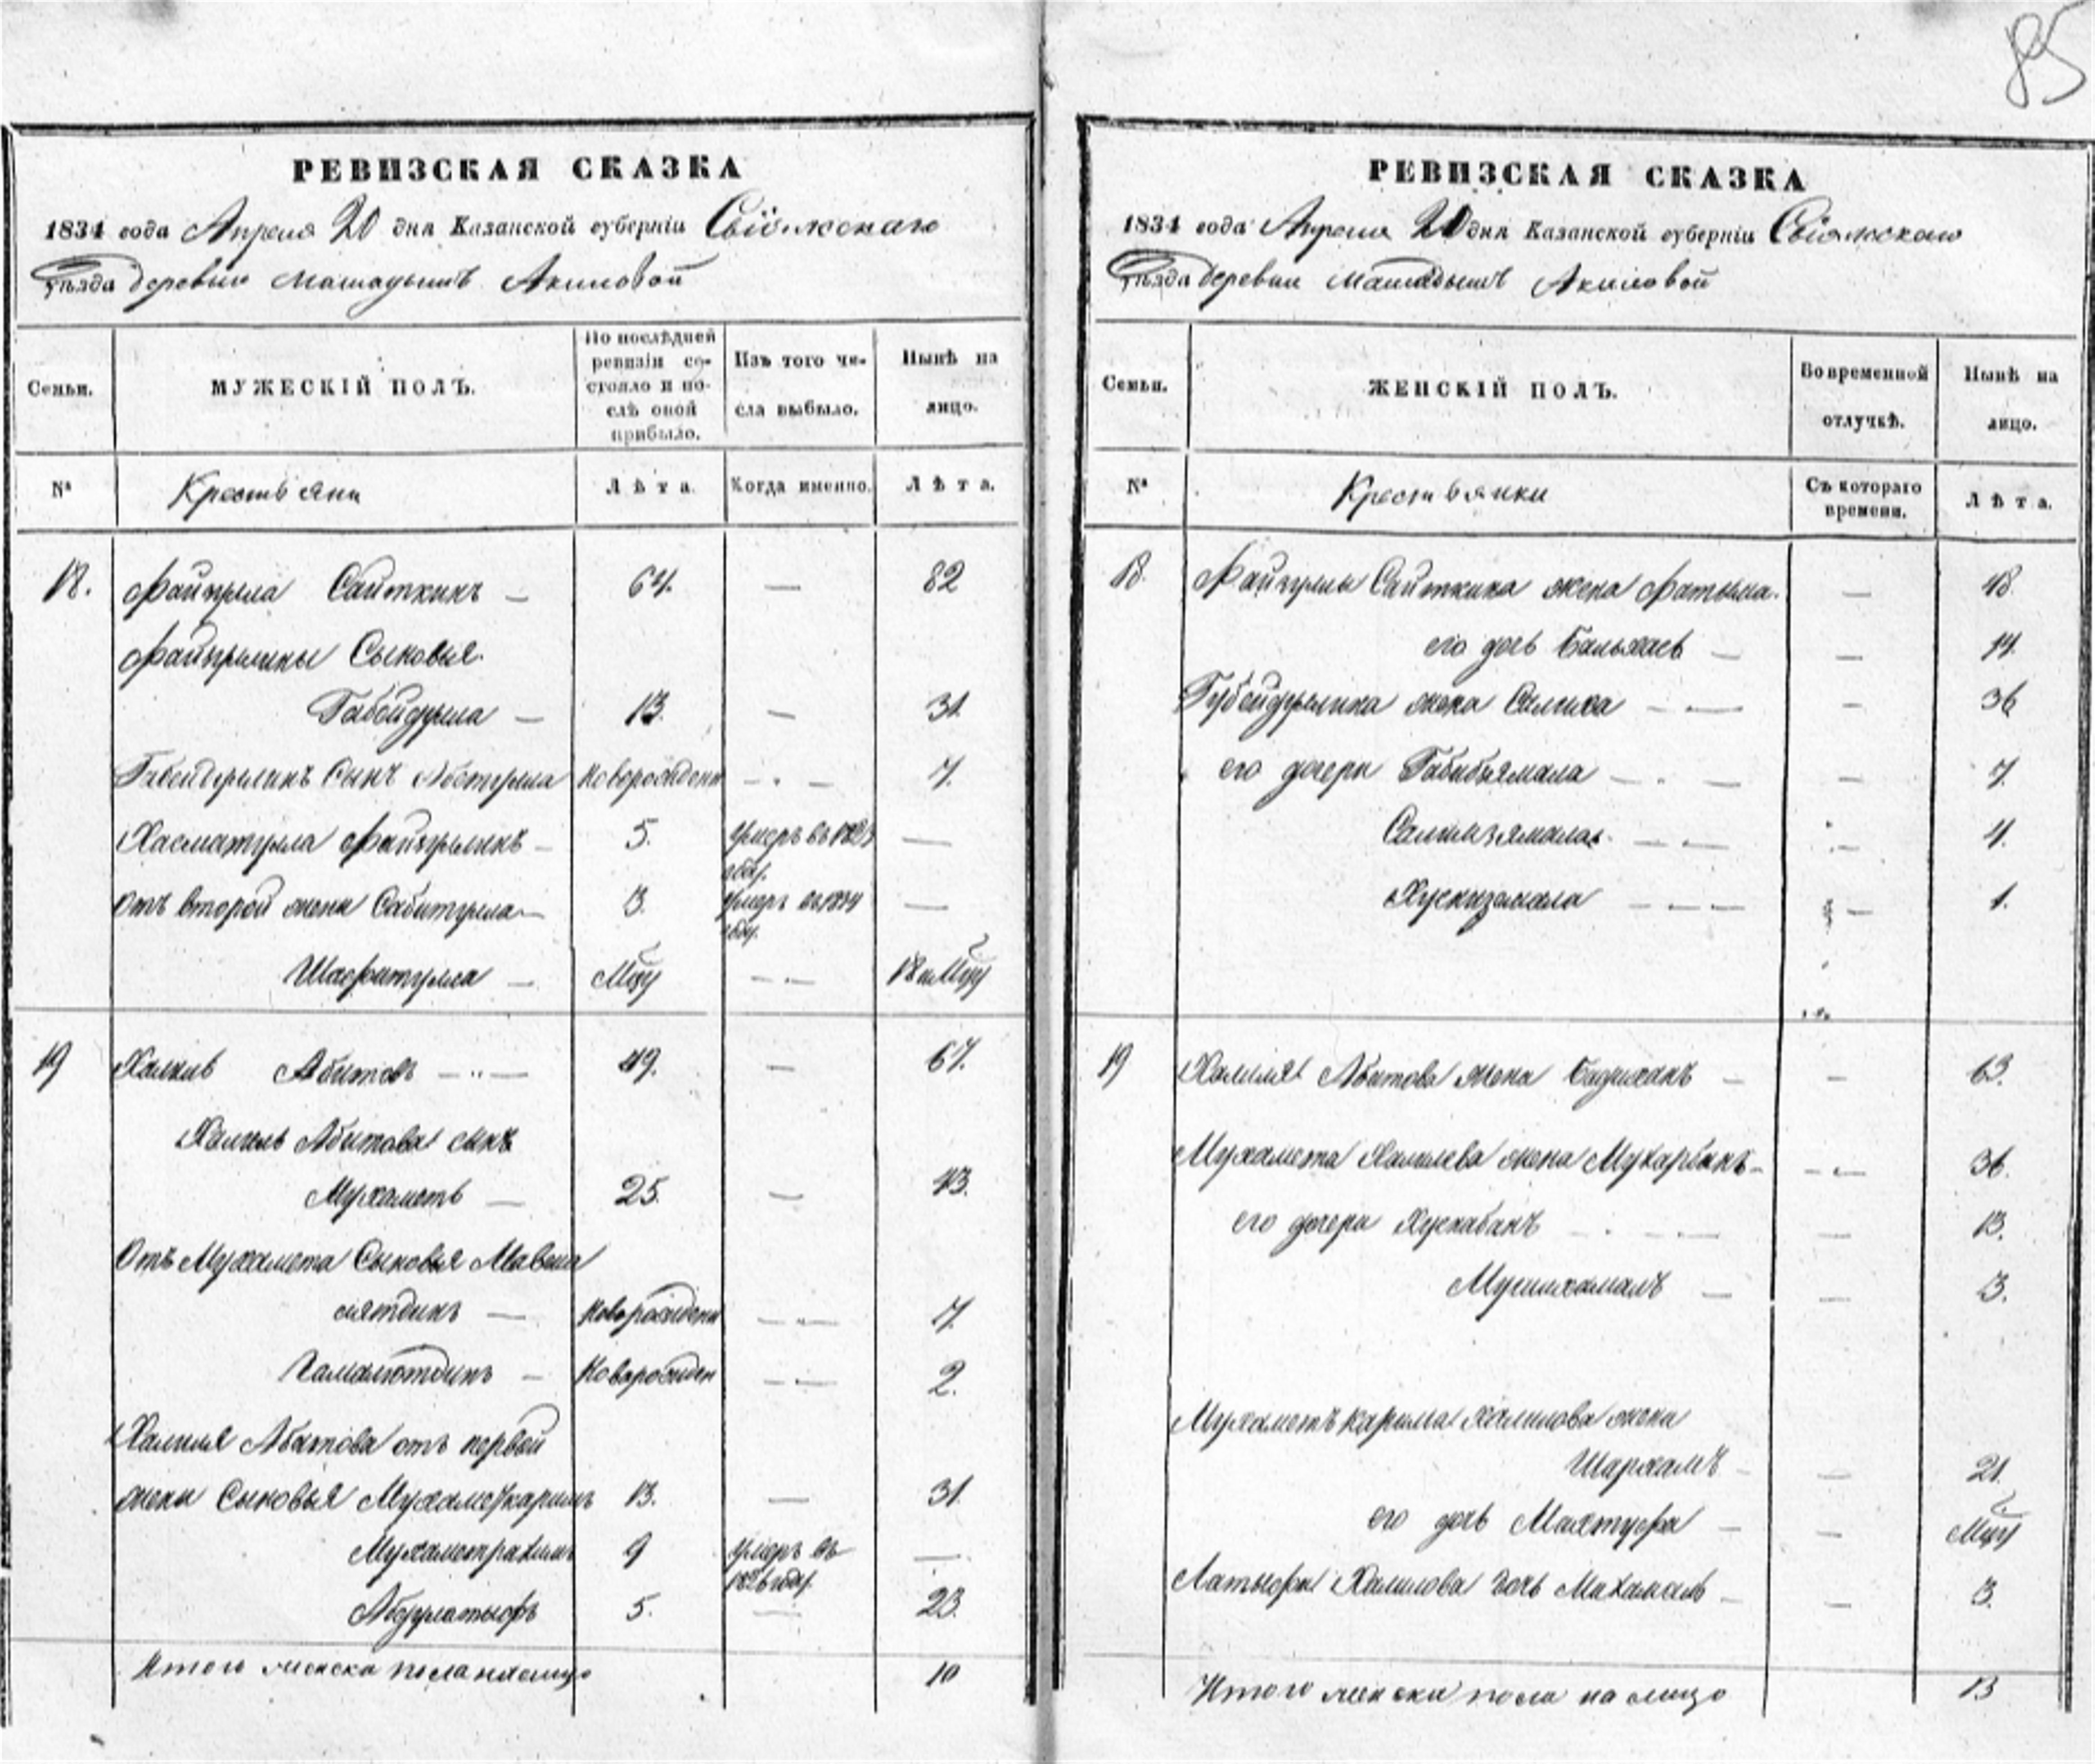 85
РЕВИЗСКАЯ СКАЗКА
1834 года Апреля 20 дня Казанской губерніи Свіяжскаго
уѣзда деревни Маматышъ Акиловой
Семьи.
МУЖЕСКІЙ ПОЛЪ.
По послѣдней ревизіи состояло и послѣ оной прибыло.
Изъ того числа выбыло.
Нынѣ на лицо.
№
Крестьяни
Лѣта.
Когда именно.
Лѣта.
18. Файзулла Сайткинъ — 64. — 82
Файзуллины Сыновья
Габейдулла — 13. — 31.
Габейдуллинъ Сынъ новорожденн — 7.
Хасматулла Файзуллинъ — 5. умеръ въ году. —
отъ второй жены Сабитулла — 3. умеръ въ году. —
Шафигулла — Мцу — 18 и Мцу
19 Халиль Абитовъ — 49. — 67.
Халиль Абитова сынъ
Мухаметъ — 25. — 43.
Отъ Мухамета Сыновья
новорожденн — 7.
Камалютдинъ — новорожден — 2.
Халиля Абитова отъ первой
жены Сыновья Мухаметкаримъ 13. — 31.
Мухаметрахимъ 9 умеръ въ 1826 году. —
Абдуллатыфъ 5. — 23.
Итого мужска пола на лицо 10
РЕВИЗСКАЯ СКАЗКА
1834 года Апреля 20 дня Казанской губерніи Свіяжскаго
уѣзда деревни Маматышъ Акиловой
Семьи.
ЖЕНСКІЙ ПОЛЪ.
Во временной отлучкѣ.
Нынѣ на лицо.
№
Крестьянки
Съ котораго времени.
Лѣта.
18. Файзуллы Сайткина жена Фатыма. — 48.
его дочь — 14.
Губейдуллина жена Салиха — 36
его дочери Габибямала — 7.
Салимзямала — 4.
Хуснизамала — 1.
19 Халиля Абитова жена Бадиханъ — 63.
Мухамета Халилева жена — 36.
его дочери Хуснабанъ — 13.
— 3.
Мухаметъ карима Халилова жена
— 21.
его дочь Махтуфа — Мцу
Латыфы Халилова дочь — 3.
Итого женска пола на лицо 13